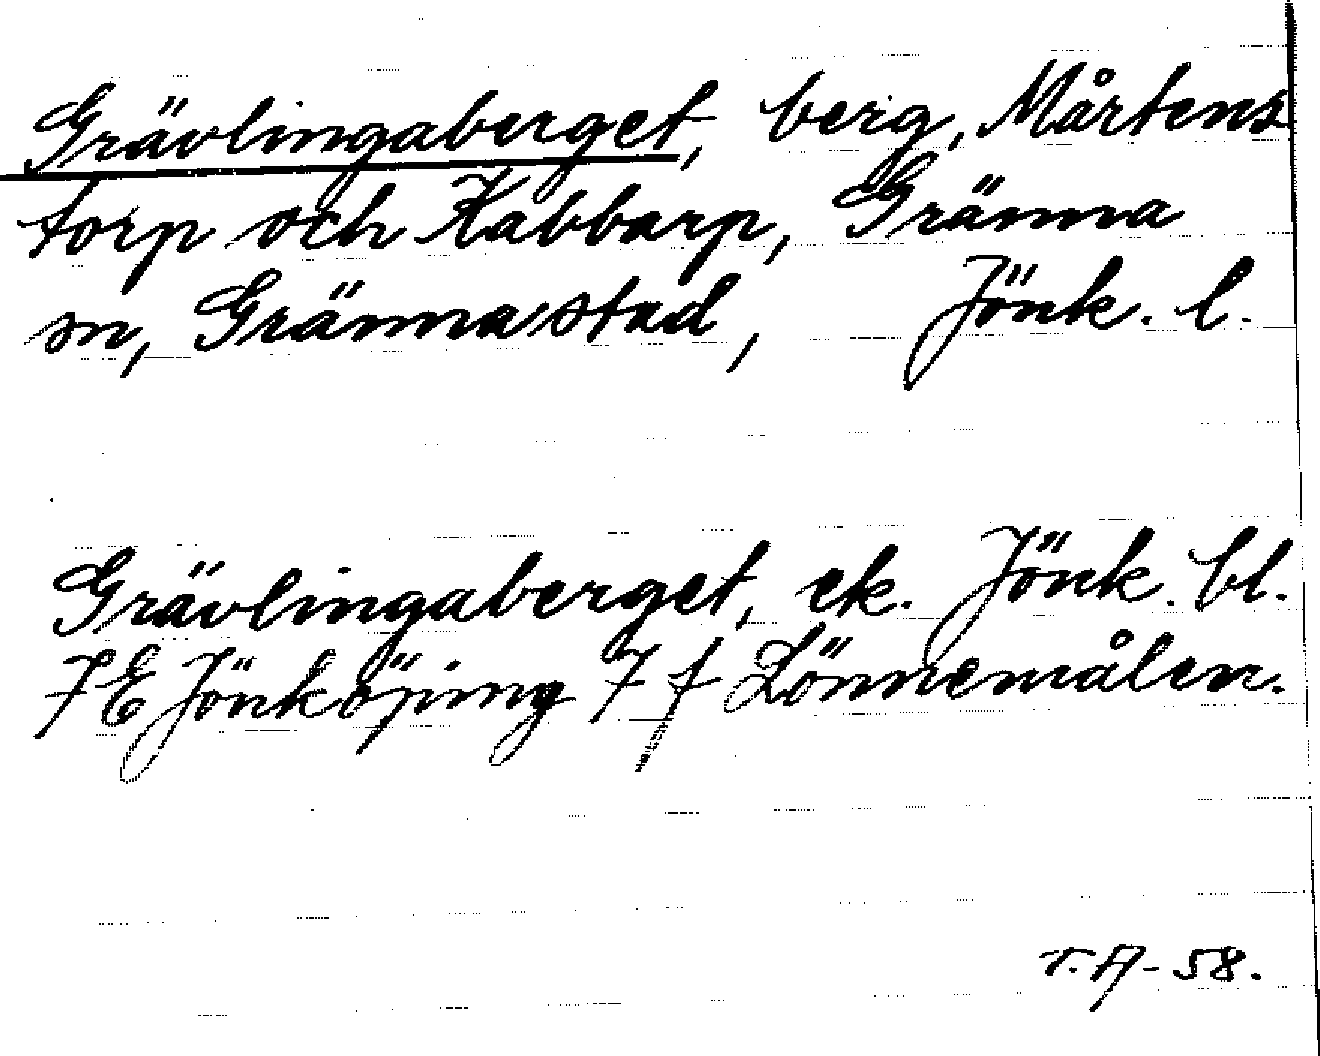 Grävlingaberget, berg, Mårtens
torp och Kabbarp, Gränna
sn, Gränna stad, Jönk. l.
Grävlingaberget, ek. Jönk. bl.
7E Jönköping 7 f Lönnemålen.
T.A-58.